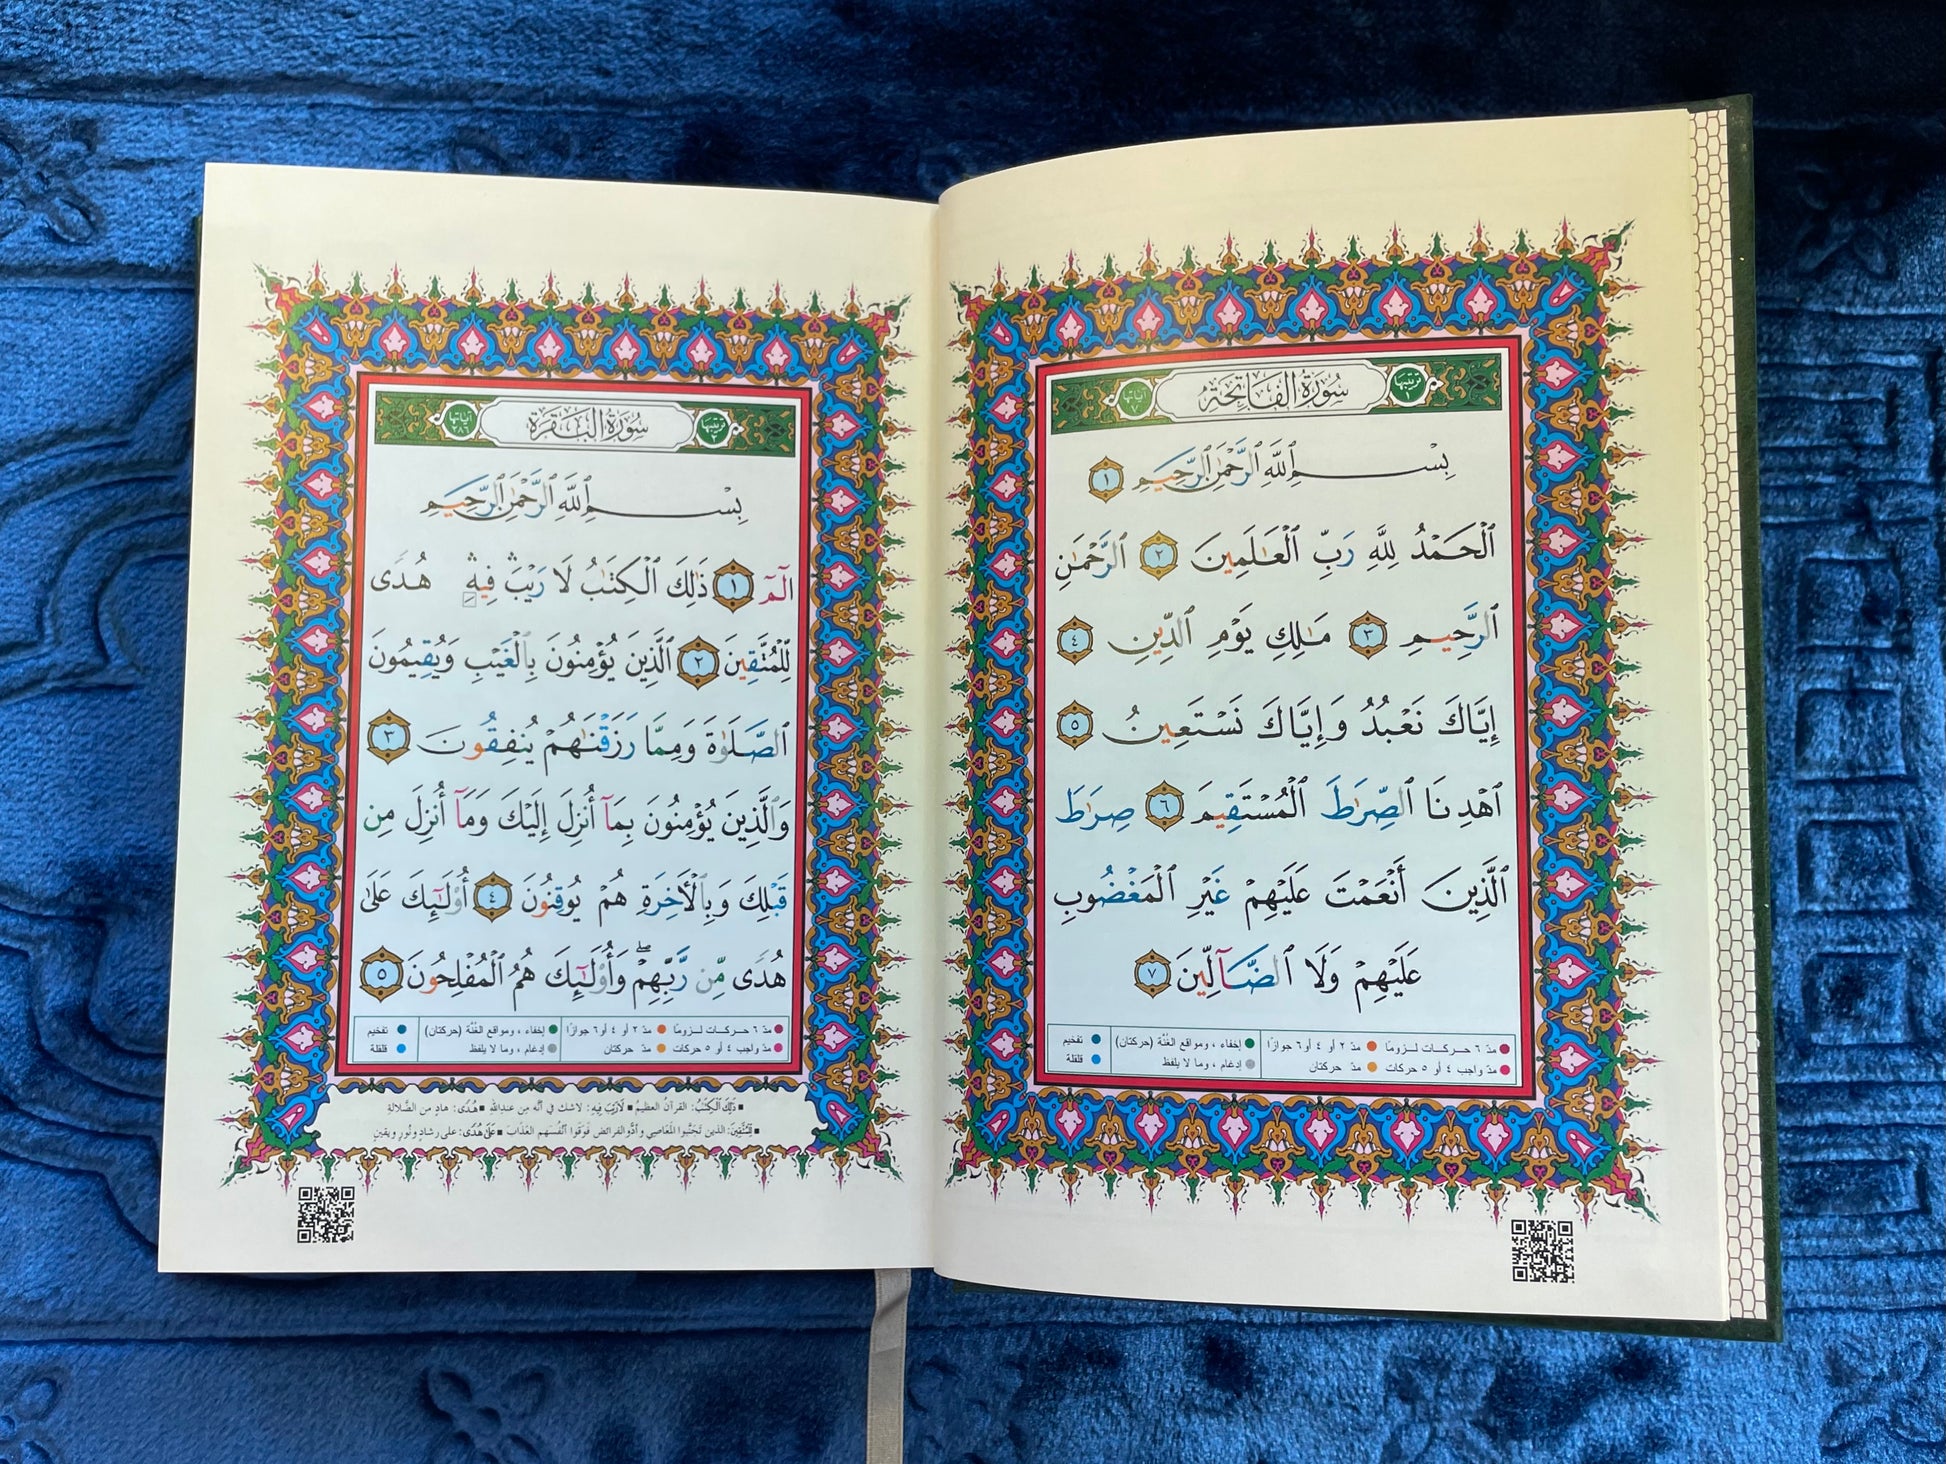 ترتيبها ١
سُورَةُ الفَاتِحَةِ
آياتها ٧
بِسْمِ ٱللَّهِ ٱلرَّحْمَٰنِ ٱلرَّحِيمِ ١
ٱلْحَمْدُ لِلَّهِ رَبِّ ٱلْعَٰلَمِينَ ٢ ٱلرَّحْمَٰنِ
ٱلرَّحِيمِ ٣ مَٰلِكِ يَوْمِ ٱلدِّينِ ٤
إِيَّاكَ نَعْبُدُ وَإِيَّاكَ نَسْتَعِينُ ٥
ٱهْدِنَا ٱلصِّرَٰطَ ٱلْمُسْتَقِيمَ ٦ صِرَٰطَ
ٱلَّذِينَ أَنْعَمْتَ عَلَيْهِمْ غَيْرِ ٱلْمَغْضُوبِ
عَلَيْهِمْ وَلَا ٱلضَّآلِّينَ ٧
مدّ ٦ حركات لزومًا مدّ ٢ أو ٤ أو ٦ جوازًا إخفاء ، ومواقع الغُنَّة (حركتان) تفخيم
مدّ واجب ٤ أو ٥ حركات مدّ حركتان إدغام ، وما لا يلفظ قلقلة
ترتيبها ٢
سُورَةُ البَقَرَةِ
آياتها ٢٨٦
بِسْمِ ٱللَّهِ ٱلرَّحْمَٰنِ ٱلرَّحِيمِ
الٓمٓ ١ ذَٰلِكَ ٱلْكِتَٰبُ لَا رَيْبَۛ فِيهِۛ هُدًى
لِّلْمُتَّقِينَ ٢ ٱلَّذِينَ يُؤْمِنُونَ بِٱلْغَيْبِ وَيُقِيمُونَ
ٱلصَّلَوٰةَ وَمِمَّا رَزَقْنَٰهُمْ يُنفِقُونَ ٣
وَٱلَّذِينَ يُؤْمِنُونَ بِمَآ أُنزِلَ إِلَيْكَ وَمَآ أُنزِلَ مِن
قَبْلِكَ وَبِٱلْأَخِرَةِ هُمْ يُوقِنُونَ ٤ أُو۟لَٰٓئِكَ عَلَىٰ
هُدًى مِّن رَّبِّهِمْۖ وَأُو۟لَٰٓئِكَ هُمُ ٱلْمُفْلِحُونَ ٥
مدّ ٦ حركات لزومًا مدّ ٢ أو ٤ أو ٦ جوازًا إخفاء ، ومواقع الغُنَّة (حركتان) تفخيم
مدّ واجب ٤ أو ٥ حركات مدّ حركتان إدغام ، وما لا يلفظ قلقلة
ذَٰلِكَ ٱلْكِتَٰبُ: القرآن العظيمُ لَا رَيْبَ فِيهِ: لاشك في أنَّه مِن عندِاللهِ هُدًى: هادٍ من الضَّلالةِ
لِلْمُتَّقِينَ: الذين تَجَنَّبوا المَعاصِي وأدَّوالفرائض فَوَقَوا أنْفُسَهم العَذَابَ عَلَىٰ هُدًى: على رشادٍ ونُورٍ ويقينٍ